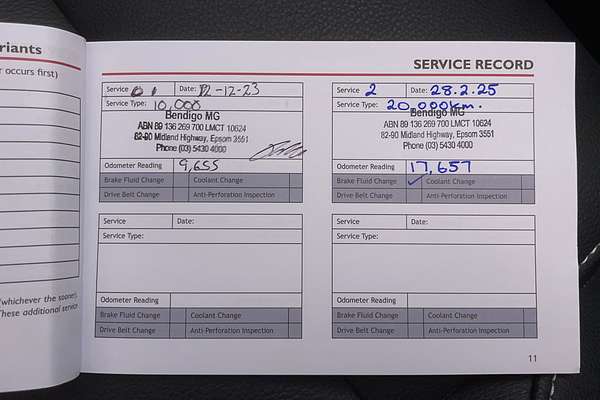 riants
r occurs first)
(whichever the sooner).
These additional service
SERVICE RECORD
Service 01 Date: 12-12-23
Service Type: 10,000
Bendigo MG
ABN 89 136 269 700 LMCT 10624
82-90 Midland Highway, Epsom 3551
Phone (03) 5430 4000
Odometer Reading 9,655
Brake Fluid Change Coolant Change
Drive Belt Change Anti-Perforation Inspection
Service 2 Date: 28.2.25
Service Type: 20,000km.
Bendigo MG
ABN 89 136 269 700 LMCT 10624
82-90 Midland Highway, Epsom 3551
Phone (03) 5430 4000
Odometer Reading 17,657
Brake Fluid Change ✓ Coolant Change
Drive Belt Change Anti-Perforation Inspection
Service Date:
Service Type:
Odometer Reading
Brake Fluid Change Coolant Change
Drive Belt Change Anti-Perforation Inspection
Service Date:
Service Type:
Odometer Reading
Brake Fluid Change Coolant Change
Drive Belt Change Anti-Perforation Inspection
11